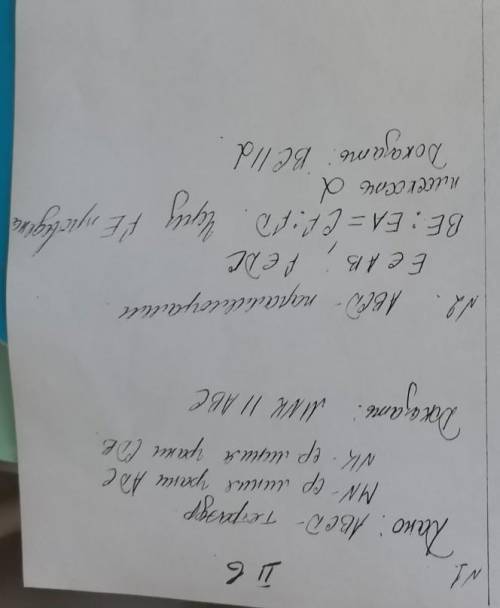 II в
N1.
Дано: ABCD - тетраэдр
MN - ср линия грани ADC
NK - ср линия грани CDB
Доказать: MNK || ABC
N2. ABCD - параллелограмм
E ∈ AB; F ∈ DC
BE : EA = CF : FD. Через FE проведена
плоскость α
Доказать: BC || α